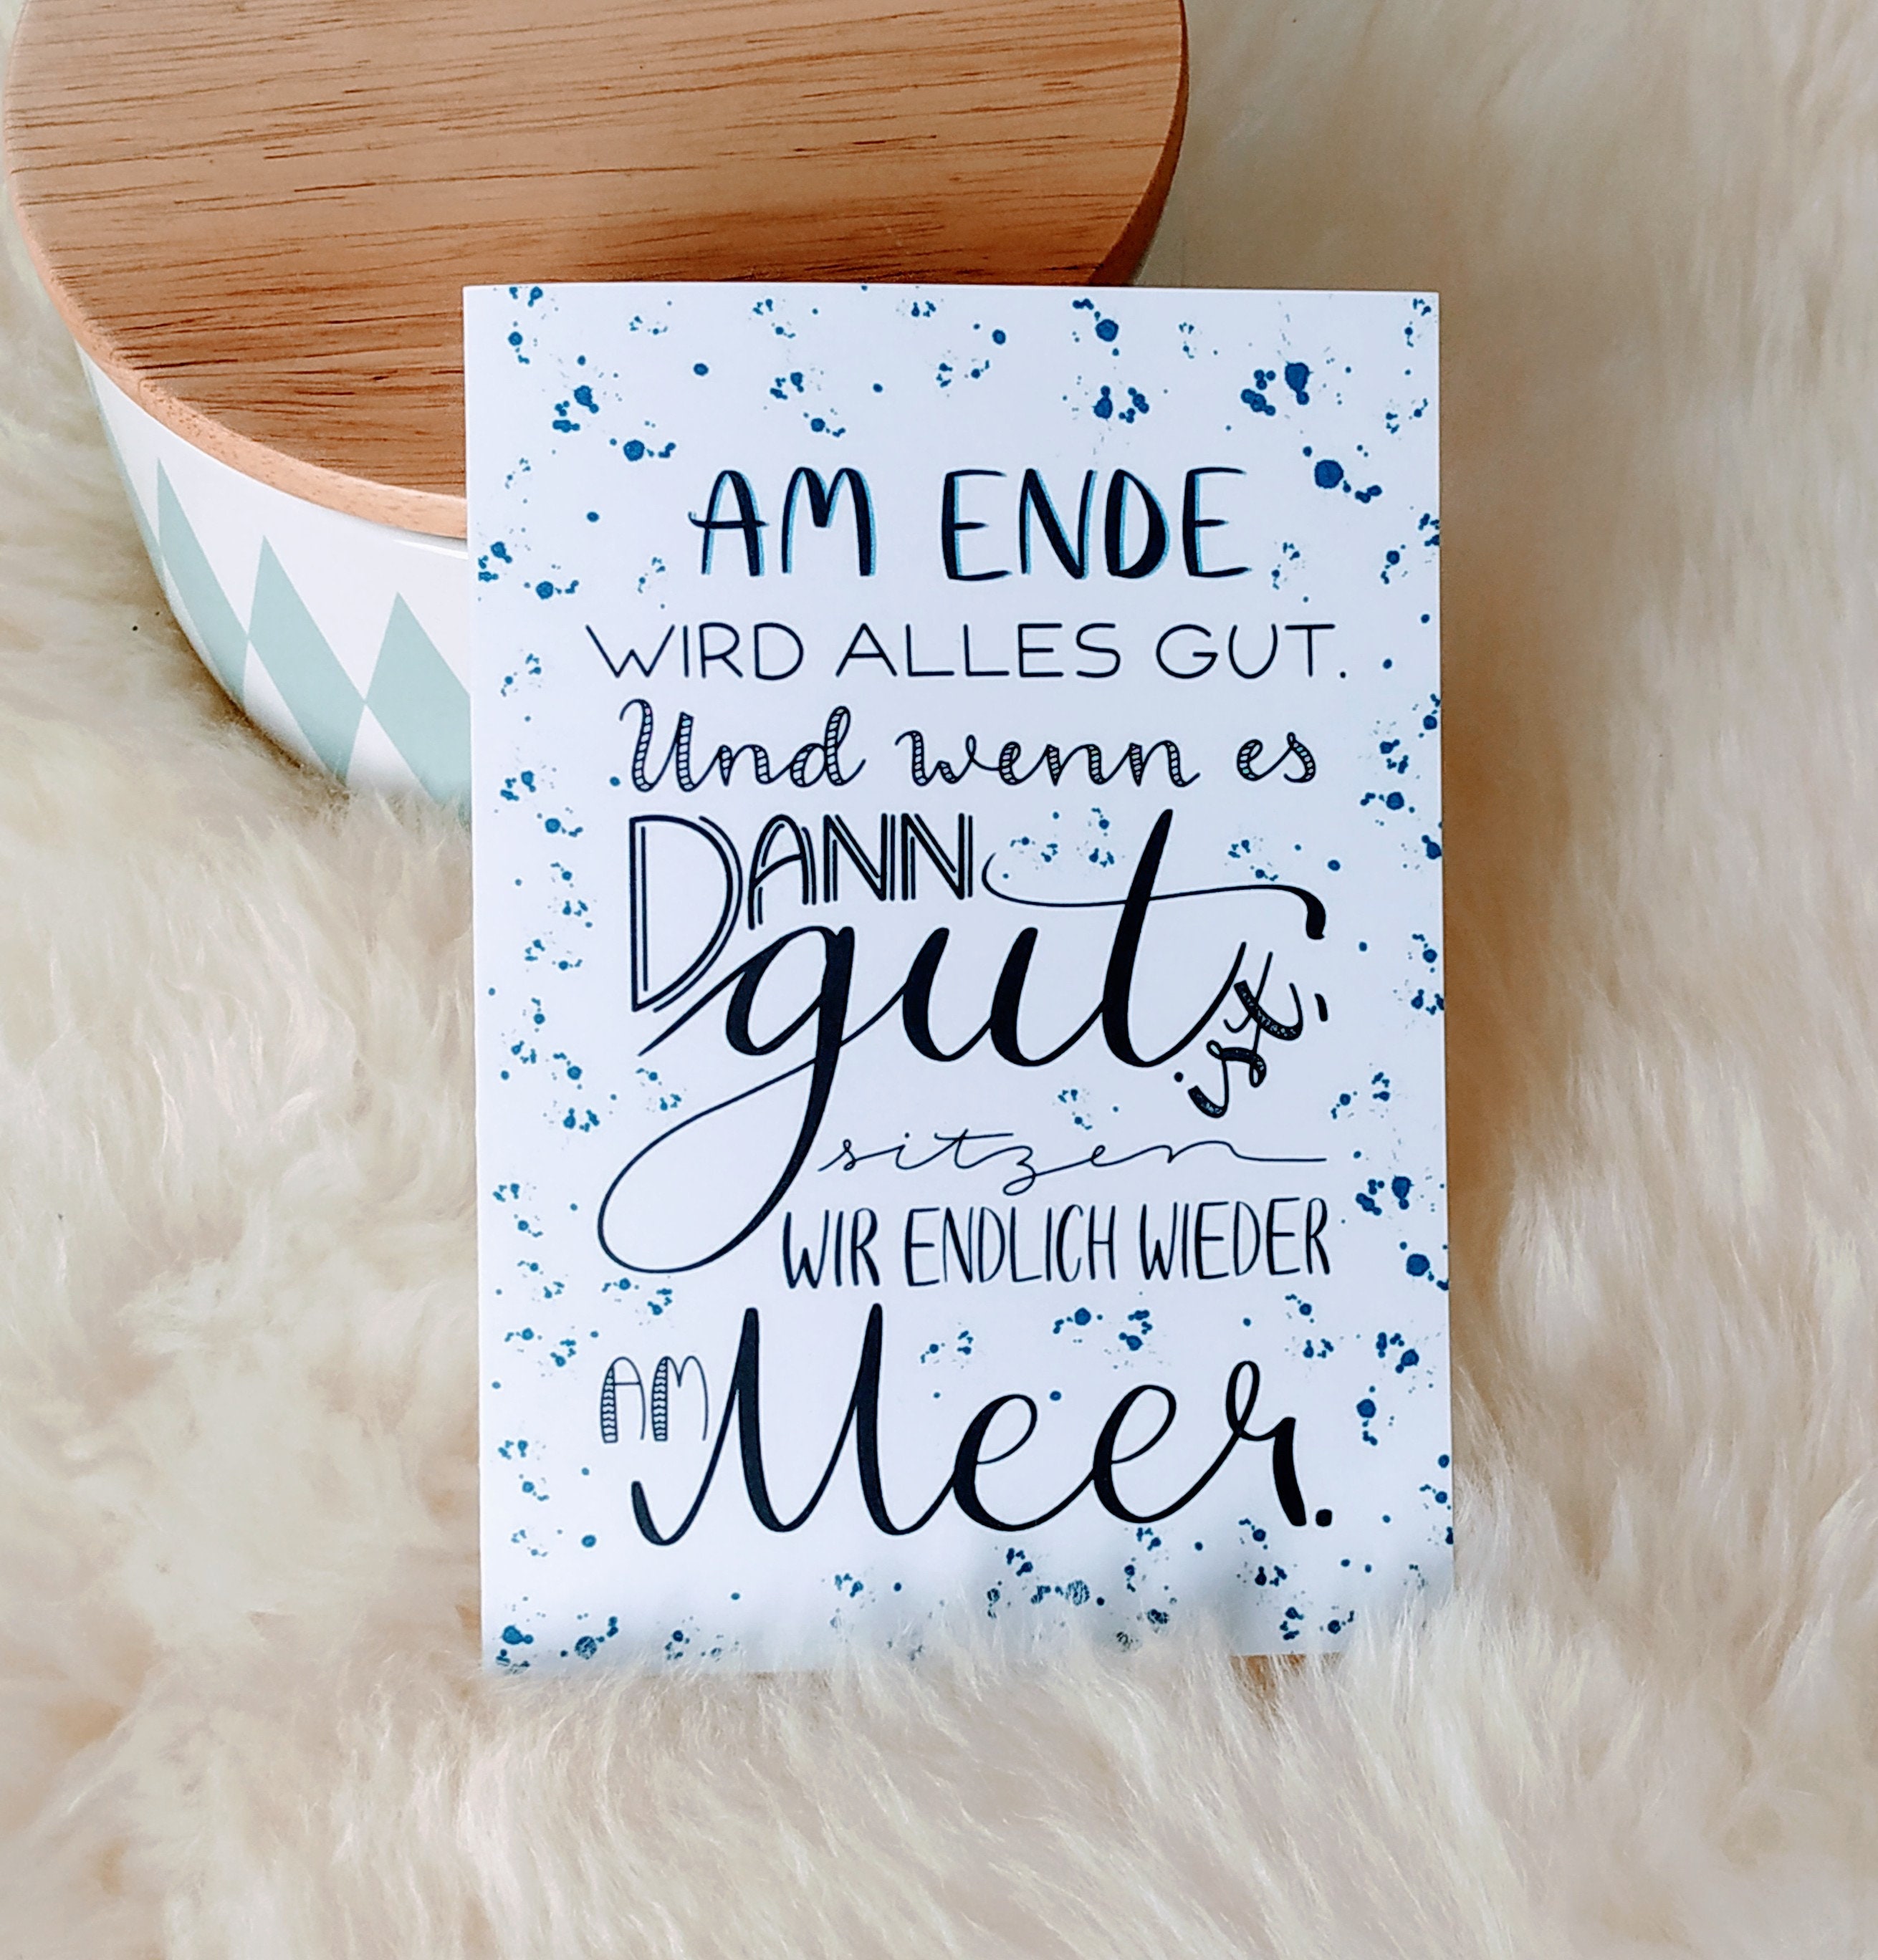 AM ENDE
WIRD ALLES GUT.
Und wenn es
DANN
gut ist,
sitzen
WIR ENDLICH WIEDER
AM Meer.